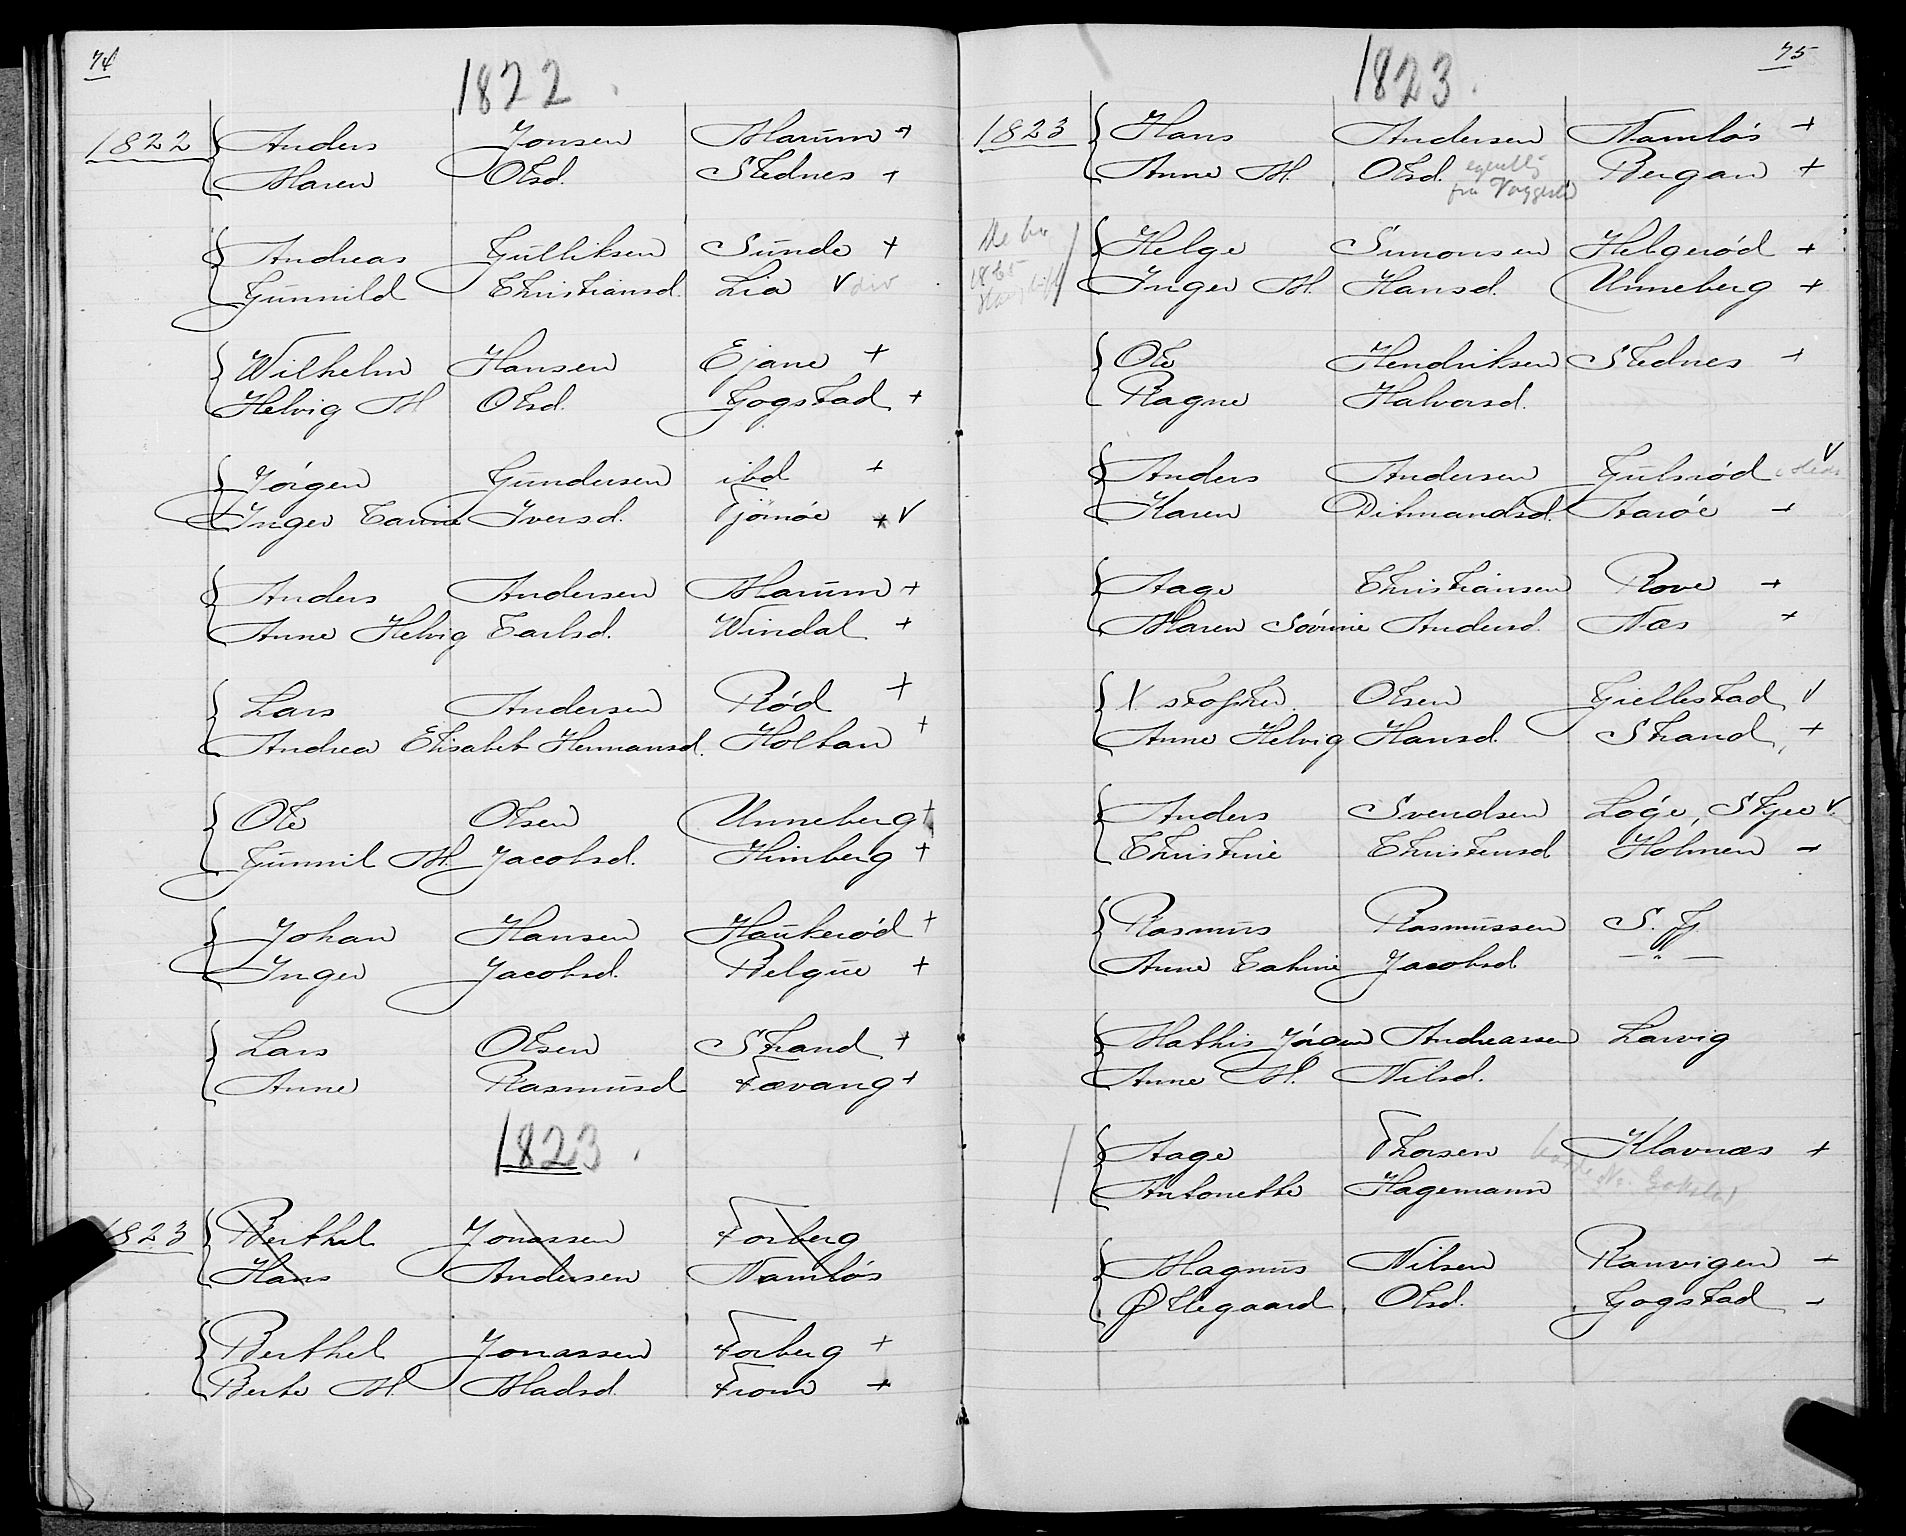 74
1822
1822 Anders Jonsen Marum +
Maren Olsd. Stednes +
Andreas Gulliksen Sunde +
Gunnild Christiansd. Lia v div
Wilhelm Hansen Ejane +
Helvig M Olsd. Gogstad +
Jørgen Gundersen ibd +
Inger Carine Iversd. Tjømøe + v
Anders Andersen Marum +
Anne Helvig Carlsd. Windal +
Lars Andersen Rød +
Andrea Elisabet Hermansd. Holtan +
Ole Olsen Unneberg +
Gunnil M. Jacobsd. Himberg +
Johan Hansen Haukerød +
Inger Jacobsd. Belgue +
Lars Olsen Strand +
Anne Rasmusd Fævang +
1823
1823 Berthel Jonassen Forberg
Hans Andersen Namløs
Berthel Jonassen Forberg +
Berte M. Madsd. From +
75
1823
1823 Hans Andersen Namløs +
Anne M. Olsd. Bergan +
Helge Simonsen Helgerød +
Inger M. Hansd. Unneberg +
Ole Hendriksen Stednes +
Ragne Halvorsd.
Anders Andersen Gulsrød v
Karen Ditmandsd. Aarøe +
Aage Christiansen Rove +
Maren Sørine Andersd. Næs +
Olsen Gjellestad v
Anne Helvig Hansd. Strand, +
Anders Svendsen Løge, Skjee v
Christine Christensd Holmen +
Rasmus Rasmussen S. Fj.
Anne Cahrine Jacobsd. — " —
Mathis Jørgen Andreassen Larvig
Anne M. Nilsd.
Aage Thorsen Klavnæs +
Antonette Hagemann
Magnus Nilsen Ranvigen +
Øllegaard Olsd. Gogstad +